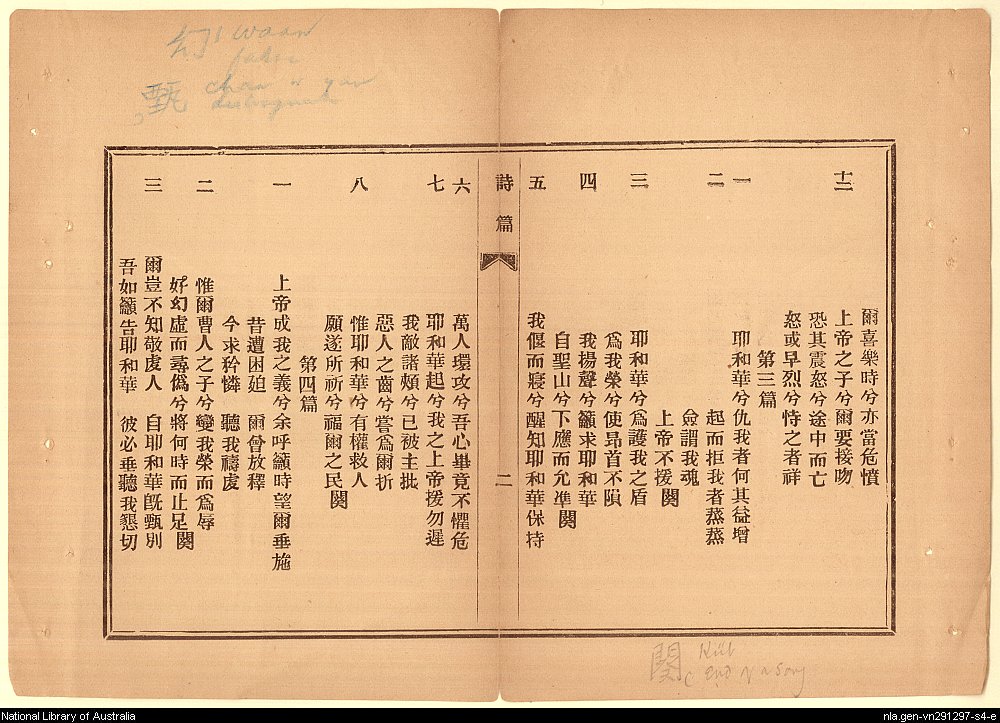 幻 waan
false
甄 chan or yan
distinguish
十二 爾喜樂時兮亦當危懍
上帝之子兮爾要接吻
恐其震怒兮途中而亡
怒或早烈兮恃之者祥
第三篇
一 耶和華兮仇我者何其益增
二 起而拒我者蒸蒸
僉謂我魂
上帝不援闋
三 耶和華兮爲護我之盾
爲我榮兮使昂首不隕
四 我揚聲兮籲求耶和華
自聖山兮下應而允準闋
五 我偃而寢兮醒知耶和華保持
詩篇 二
六 萬人環攻兮吾心畢竟不懼危
七 耶和華起兮我之上帝援勿遲
我敵諸頰兮已被主批
惡人之齒兮嘗爲爾折
八 惟耶和華兮有權救人
願遂所祈兮福爾之民闋
第四篇
一 上帝成我之義兮余呼籲時望爾垂施
昔遭困廹 爾曾放釋
今求矜憐 聽我禱虔
二 惟爾曹人之子兮變我榮而爲辱
好幻虛而尋僞兮將何時而止足闋
三 爾豈不知敬虔人 自耶和華旣甄別
吾如籲告耶和華 彼必垂聽我懇切
闋 Küt
end of a song
National Library of Australia
nla.gen-vn291297-s4-e